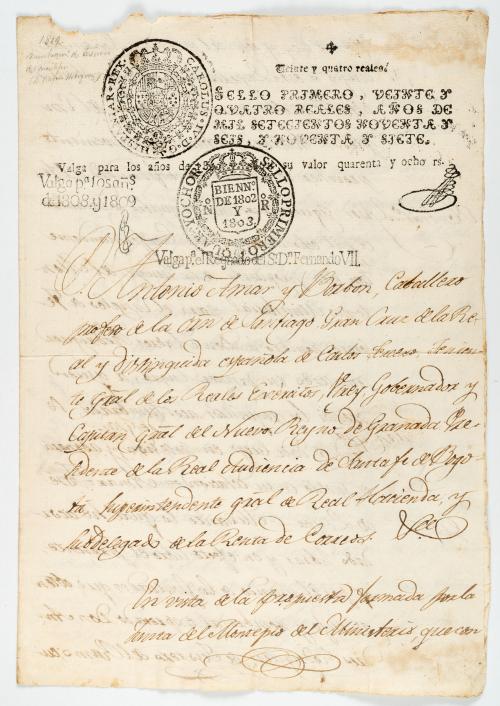 1809
Veinte y quatro reales.
SELLO PRIMERO, VEINTE Y
QVATRO REALES, AÑOS DE
MIL SETECIENTOS NOVENTA Y
SEIS, Y NOVENTA Y SIETE.
CAROLUS IV D.G. HISPANIAR. REX
Valga para los años de su valor quarenta y ocho rs.
Valga pª. los añs.
de 1808. y 1809
SELLO PRIMERO
BIENNº.
DE 1802
Y
1803.
Nº R
Valga pª. el Reynado del Sr. Dn. Fernando VII.
D. Antonio Amar y Borbon, Caballero
profeso de la Orn de Santiago Gran Cruz de la Re
al y distinguida española de Carlos tercero, tenien
te gral de los Reales Exercitos, Virrey Gobernador y
Capitan gral del Nuevo Reyno de Granada Pre
sidente de la Real audiencia de Santafe de Bogo
ta, Superintendente gral de Real Hacienda, y
subdelegado de la Renta de Correos. &ca
En vista de la propuesta formada por la
Junta del Montepio del Ministerio, que con